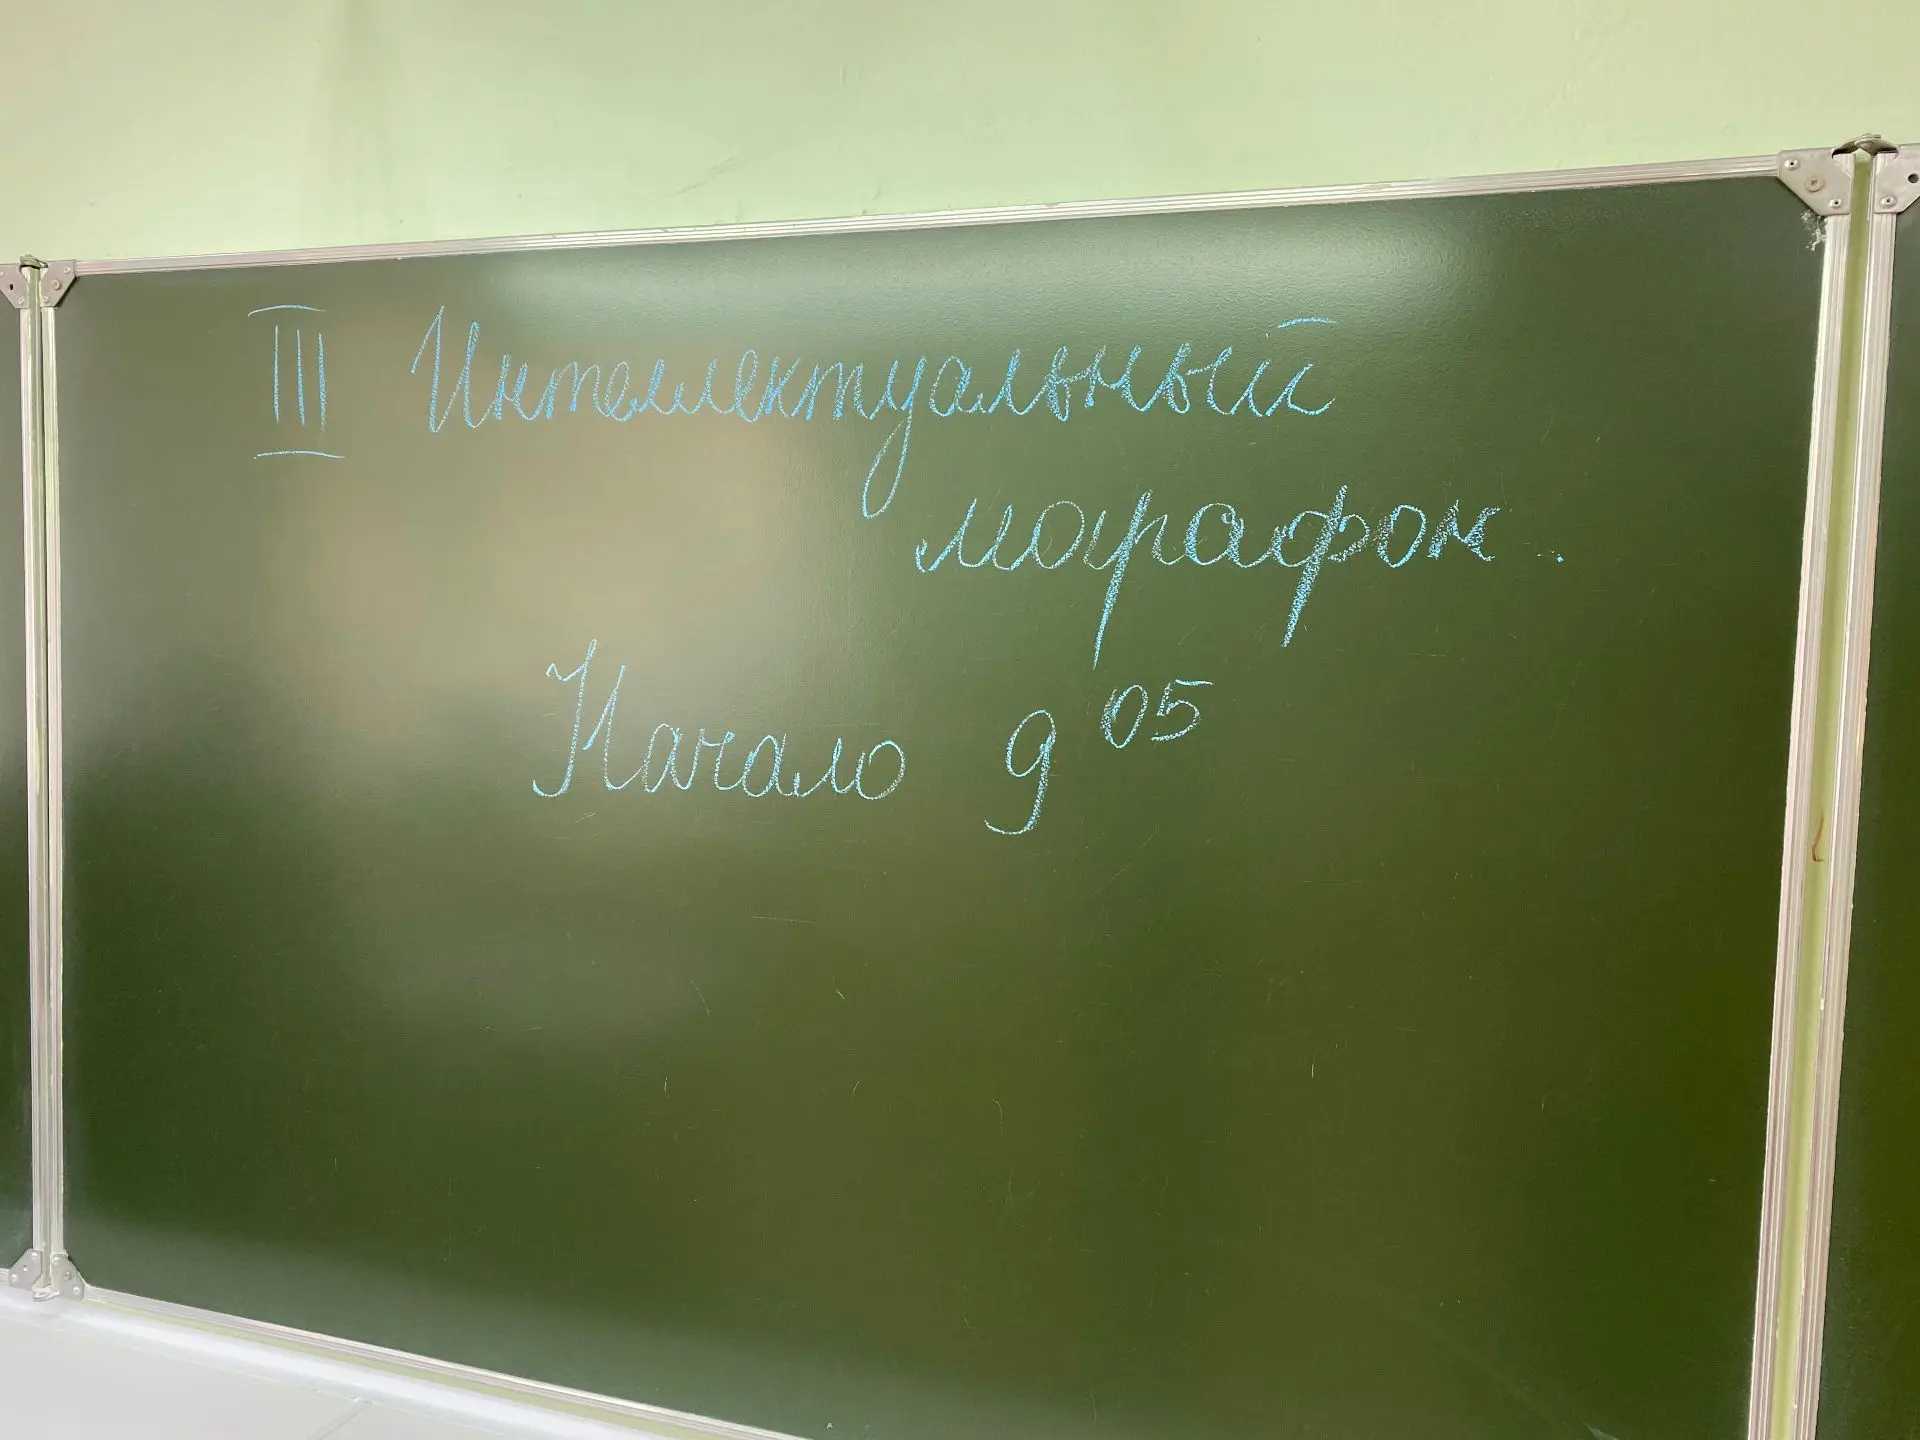 III Интеллектуальный
морафон.
Начало 9⁰⁵